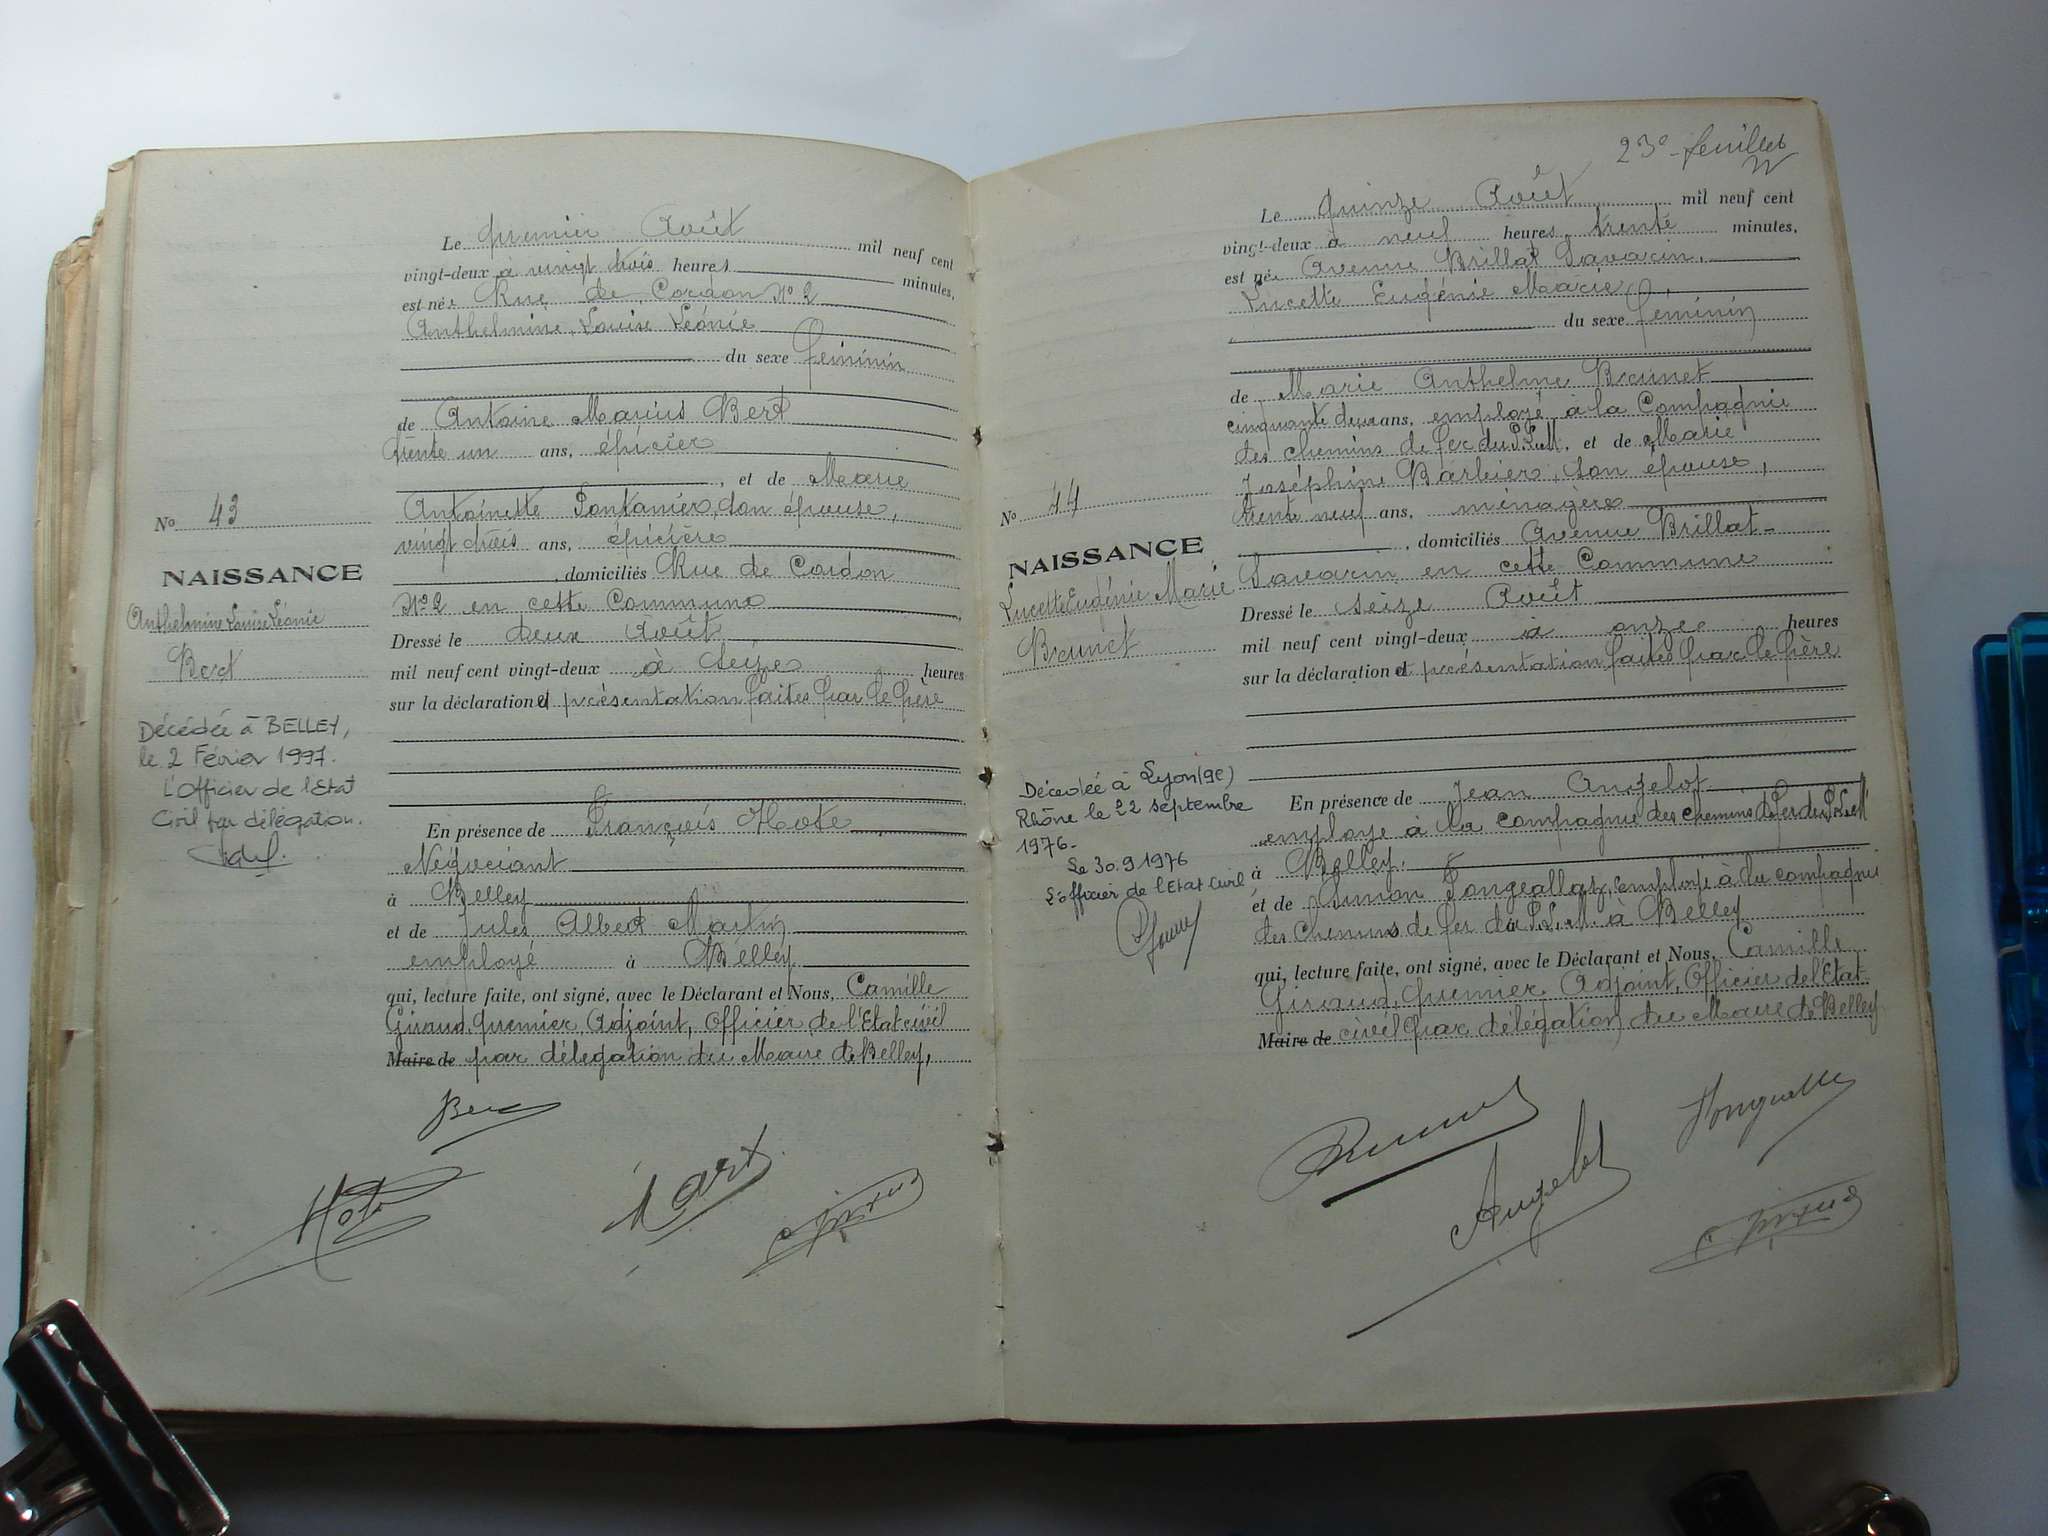 Le premier Août mil neuf cent
vingt-deux à vingt trois heures minutes,
est née Rue de Cordon No 2
Anthelmine Louise Léonie
du sexe féminin
de Antoine Marius Bert
trente un ans, épicier
, et de Marie
Antoinette Pontanier, son épouse,
vingt trois ans, épicière
, domiciliés Rue de Cordon
No 2 en cette Commune
Dressé le deux Août
mil neuf cent vingt-deux à seize heures
sur la déclaration et présentation faites par le père
En présence de François Hote
Négociant
à Belley
et de Jules Albert Martin
employé à Belley
qui, lecture faite, ont signé, avec le Déclarant et Nous, Camille
Giraud, premier Adjoint, Officier de l'Etat civil
Maire de par délégation du Maire de Belley,
No 43
NAISSANCE
Anthelmine Louise Léonie
Bert
Décédée à BELLEY,
le 2 Février 1997.
L'Officier de l'Etat
Civil par délégation.
Hote
Mart
23e feuillet
Le quinze Août mil neuf cent
vingt-deux à neuf heures trente minutes,
est née Avenue Brillat Savarin,
Lucette Eugénie Marie
du sexe féminin
de Marie Anthelme Brunet
cinquante deux ans, employé à la Compagnie
des chemins de fer du P.L.M., et de Marie
Joséphine Barbier, son épouse,
trente neuf ans, ménagère
, domiciliés Avenue Brillat-
Savarin en cette Commune
Dressé le seize Août
mil neuf cent vingt-deux à onze heures
sur la déclaration et présentation faites par le père
En présence de Jean Angelot
employé à la compagnie des chemins de fer du P.L.M
à Belley.
et de Simon employé à la compagnie
des chemins de fer du P.L.M. à Belley
qui, lecture faite, ont signé, avec le Déclarant et Nous, Camille
Giraud, premier Adjoint, Officier de l'Etat
Maire de civil par délégation du Maire de Belley
No 44
NAISSANCE
Lucette Eugénie Marie
Brunet
Décédée à Lyon (9e)
Rhône le 22 septembre
1976-
Le 30.9.1976
L'officier de l'Etat Civil
Brunet
Angelot